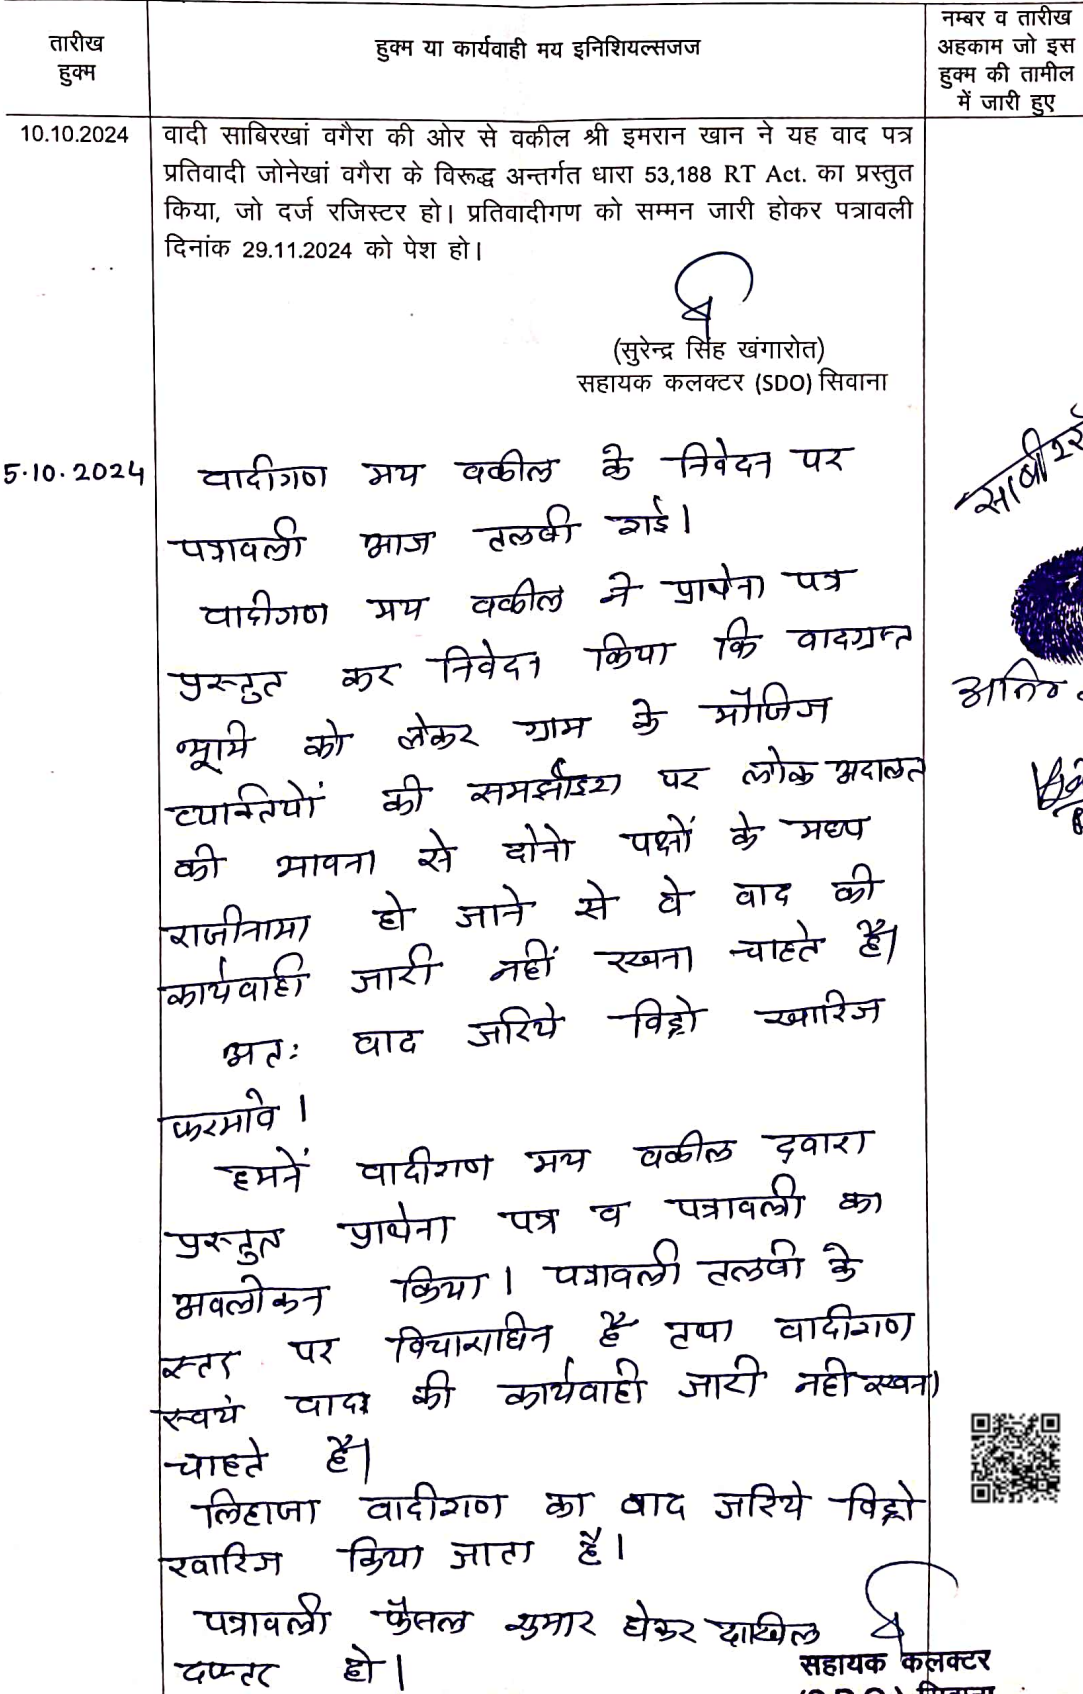 तारीख
हुक्म
हुक्म या कार्यवाही मय इनिशियल्सजज
नम्बर व तारीख
अहकाम जो इस
हुक्म की तामील
में जारी हुए
10.10.2024
वादी साबिरखां वगैरा की ओर से वकील श्री इमरान खान ने यह वाद पत्र
प्रतिवादी जोनेखां वगैरा के विरूद्ध अन्तर्गत धारा 53,188 RT Act. का प्रस्तुत
किया, जो दर्ज रजिस्टर हो। प्रतिवादीगण को सम्मन जारी होकर पत्रावली
दिनांक 29.11.2024 को पेश हो।
(सुरेन्द्र सिंह खंगारोत)
सहायक कलक्टर (SDO) सिवाना
5.10.2024
वादीगण मय वकील के निवेदन पर
पत्रावली आज तलबी गई।
वादीगण मय वकील ने प्रार्थना पत्र
प्रस्तुत कर निवेदन किया कि वादग्रस्त
भूमि को लेकर ग्राम के मौजिज
व्यक्तियों की समझाईश पर लोक अदालत
की भावना से दोनो पक्षों के मध्य
राजीनामा हो जाने से वे वाद की
कार्यवाही जारी नहीं रखना चाहते है।
अतः वाद जरिये विड्रो खारिज
फरमावे।
हमनें वादीगण मय वकील द्वारा
प्रस्तुत प्रार्थना पत्र व पत्रावली का
अवलोकन किया। पत्रावली तलबी के
स्तर पर विचाराधिन है तथा वादीगण
स्वयं वाद की कार्यवाही जारी नही रखना
चाहते है।
लिहाजा वादीगण का वाद जरिये विड्रो
खारिज किया जाता है।
पत्रावली फैसल शुमार होकर दाखिल
दफ्तर हो।
सहायक कलक्टर